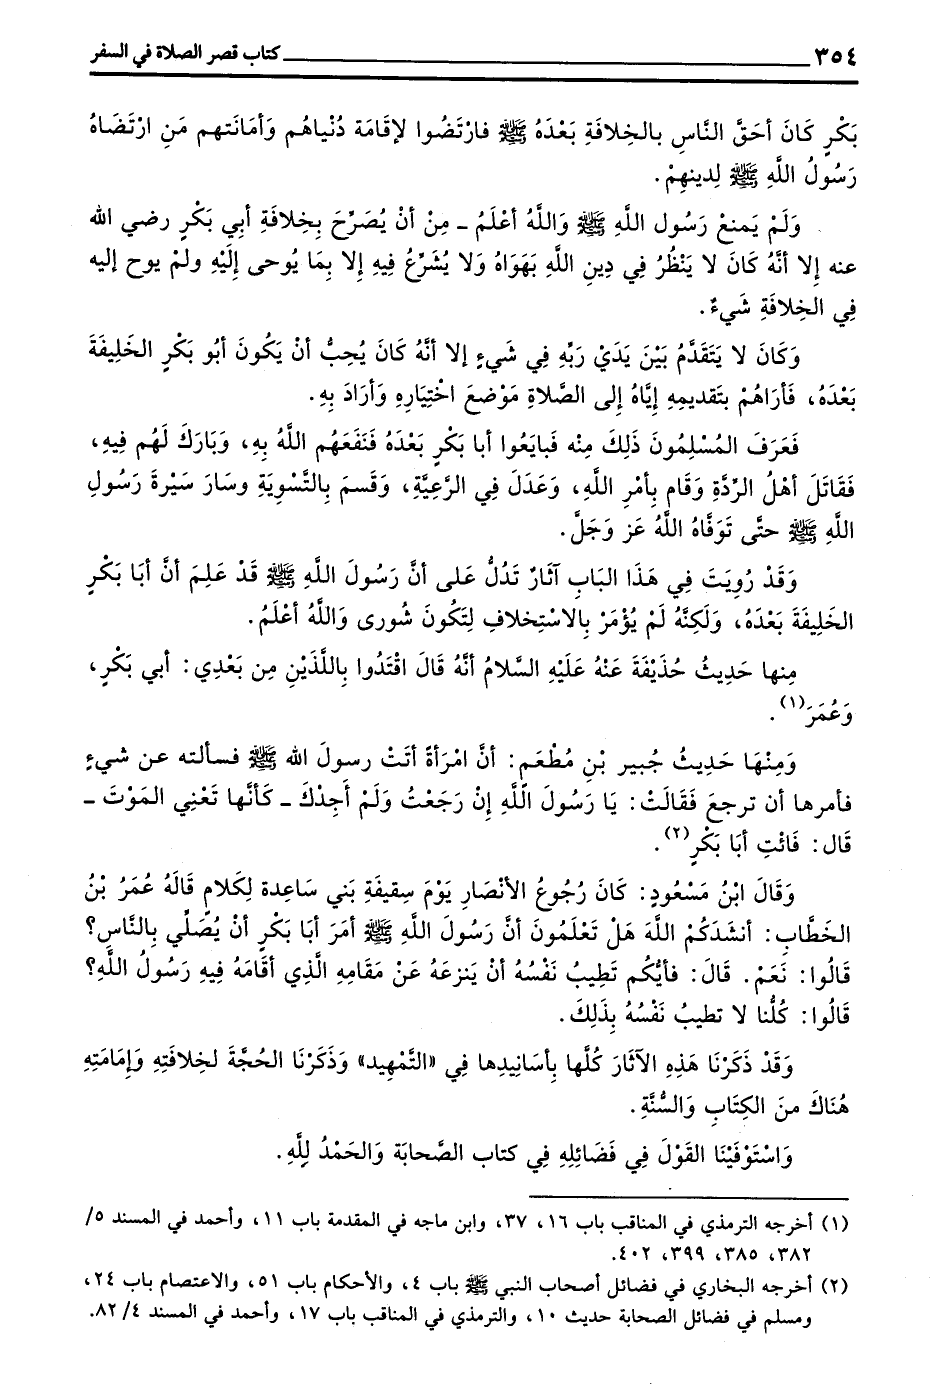 ٣٥٤ كتاب قصر الصلاة في السفر
بَكْرٍ كَانَ أحَقَّ النَّاسِ بالخِلافَةِ بَعْدَهُ ﷺ فارْتَضُوا لإقَامَة دُنْياهُم وَأمَانَتهم مَن ارْتَضَاهُ
رَسُولُ اللَّهِ ﷺ لِدينهِمْ.
وَلَمْ يَمنعْ رَسُول اللَّهِ ﷺ وَاللَّهُ أعْلَمُ ـ مِنْ أنْ يُصَرِّحَ بِخِلافَةِ أبي بَكْرٍ رضي الله
عنه إلا أنَّهُ كَانَ لا يَنْظُرُ فِي دِينِ اللَّهِ بِهَوَاهُ وَلا يُشَرِّعُ فِيهِ إلا بِمَا يُوحى إلَيْهِ ولمْ يوح إليه
فِي الخِلافَةِ شَيءٌ.
وَكَانَ لا يَتَقَدَّمُ بَيْنَ يَدَيْ رَبِّهِ فِي شَيءٍ إلا أنَّهُ كَانَ يُحِبُّ أنْ يَكُونَ أبُو بَكْرٍ الخَلِيفَةَ
بَعْدَهُ، فَأرَاهُمْ بتَقديمِهِ إيَّاهُ إلى الصَّلاةِ مَوْضعَ اخْتِيَارِهِ وَأرَادَ بِهِ.
فَعَرَفَ المُسْلِمُونَ ذَلِكَ مِنْه فَبايَعُوا أبا بَكْرٍ بَعْدَهُ فَنَفَعَهُم اللَّهُ بِهِ، وَبَارَكَ لَهُم فِيهِ،
فَقَاتَلَ أهْلُ الرِّدَّةِ وَقَام بِأمْرِ اللَّهِ، وَعَدَلَ فِي الرَّعِيَّةِ، وَقَسمَ بِالتَّسْوِيَةِ وسَارَ سَيْرةَ رَسُولِ
اللَّهِ ﷺ حتَّى تَوَفَّاهُ اللَّهُ عَز وَجَلَّ.
وَقَدْ رُوِيَتَ فِي هَذَا البَابِ آثَارٌ تَدُلُّ عَلى أنَّ رَسُولَ اللَّهِ ﷺ قَدْ عَلِمَ أنَّ أبَا بَكْرٍ
الخَلِيفَةَ بَعْدَهُ، وَلَكِنَّهُ لَمْ يُؤْمَرْ بِالاسْتِخلافِ لِتَكُونَ شُورى وَاللَّهُ أعْلَمُ.
مِنها حَدِيثُ حُذَيْفَةَ عَنْهُ عَلَيْهِ السَّلامُ أنَّهُ قَالَ اقْتَدُوا بِاللَّذَيْنِ مِن بَعْدِي: أبي بَكْرٍ،
وَعُمَرَ(١).
وَمِنْهَا حَدِيثُ جُبير بْنِ مُطْعَم: أنَّ امْرَأةً أتَتْ رسولَ الله ﷺ فسألته عن شيءٍ
فأمرها أن ترجعَ فَقَالَتْ: يَا رَسُولَ اللَّهِ إنْ رَجَعْتُ وَلَمْ أجِدْكَ ـ كَأنَّها تَعْنِي المَوْتَ ـ
قَال: فَائْتِ أبَا بَكْرٍ(٢).
وَقَالَ ابْنُ مَسْعُودٍ: كَانَ رُجُوعُ الأنْصَارِ يَوْمَ سِقيفَةِ بَني سَاعِدة لِكَلامٍ قَالَهُ عُمَرُ بْنُ
الخَطَّابِ: أنشَدَكُمْ اللَّهَ هَلْ تَعْلَمُونَ أنَّ رَسُولَ اللَّهِ ﷺ أمَرَ أبَا بَكْرٍ أنْ يُصَلِّي بِالنَّاسِ؟
قَالُوا: نَعَمْ. قَالَ: فأيُّكُم تَطِيبُ نَفْسُهُ أنْ يَنزعَهُ عَنْ مَقَامِهِ الَّذي أقَامَهُ فِيهِ رَسُولُ اللَّهِ؟
قَالُوا: كُلُّنا لا تطيبُ نَفْسُهُ بِذَلِكَ.
وَقَدْ ذَكَرْنَا هَذِهِ الآثَارَ كُلَّها بِأسَانِيدِها فِي «التَّمْهِيد» وَذَكَرْنَا الحُجَّةَ لخِلافَتِهِ وَإمَامَتِهِ
هُنَاكَ منَ الكِتَابِ وَالسُّنَّةِ.
وَاسْتَوْفَيْنَا القَوْلَ فِي فَضَائِلِهِ فِي كتاب الصَّحابَة وَالحَمْدُ لِلَّهِ.
(١) أخرجه الترمذي في المناقب باب ١٦، ٣٧، وابن ماجه في المقدمة باب ١١، وأحمد في المسند ٥/
٣٨٢، ٣٨٥، ٣٩٩، ٤٠٢.
(٢) أخرجه البخاري في فضائل أصحاب النبي ﷺ باب ٤، والأحكام باب ٥١، والاعتصام باب ٢٤،
ومسلم في فضائل الصحابة حديث ١٠، والترمذي في المناقب باب ١٧، وأحمد في المسند ٤/ ٨٢.